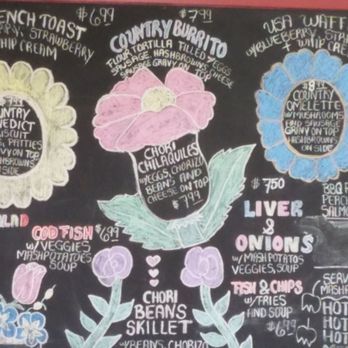 ENCH TOAST $6.99
RRY, STRAWBERRY
HIP CREAM
$7.99
COUNTRY BURRITO
FLOUR TORTILLA TILLED
SAUSAGE, HASHBROWNS, EGGS
SAUSAGE GRAVY ON TOP CHEESE
USA WAFF
W/BLUEBERRY, STRA
+ WHIP CRE
$7.99
COUNTRY
NEDICT
BISCUIT
PATTIES
VY ON TOP
HASHBROWNS
ON SIDE
CHORI
CHILAQUILES
W/EGGS, CHORIZO
BEANS AND
CHEESE ON TOP
$7.99
COUNTRY
OMELETTE
W/MUSHROOMS
AND SAUSAGE
GRAVY ON TOP
HASHBROWNS
ON SIDE
ALAD
COD FISH $6.99
W/VEGGIES
MASHPOTATOES
SOUP
CHORI
BEANS
SKILLET
W/BEANS, CHORIZO
$7.50
LIVER
&
ONIONS
W/MASHPOTATOS
VEGGIES, SOUP
FISH & CHIPS
W/FRIES
AND SOUP
BBQ
PEAC
SALMO
SERV
MASHP
HOT
HOT
HOT